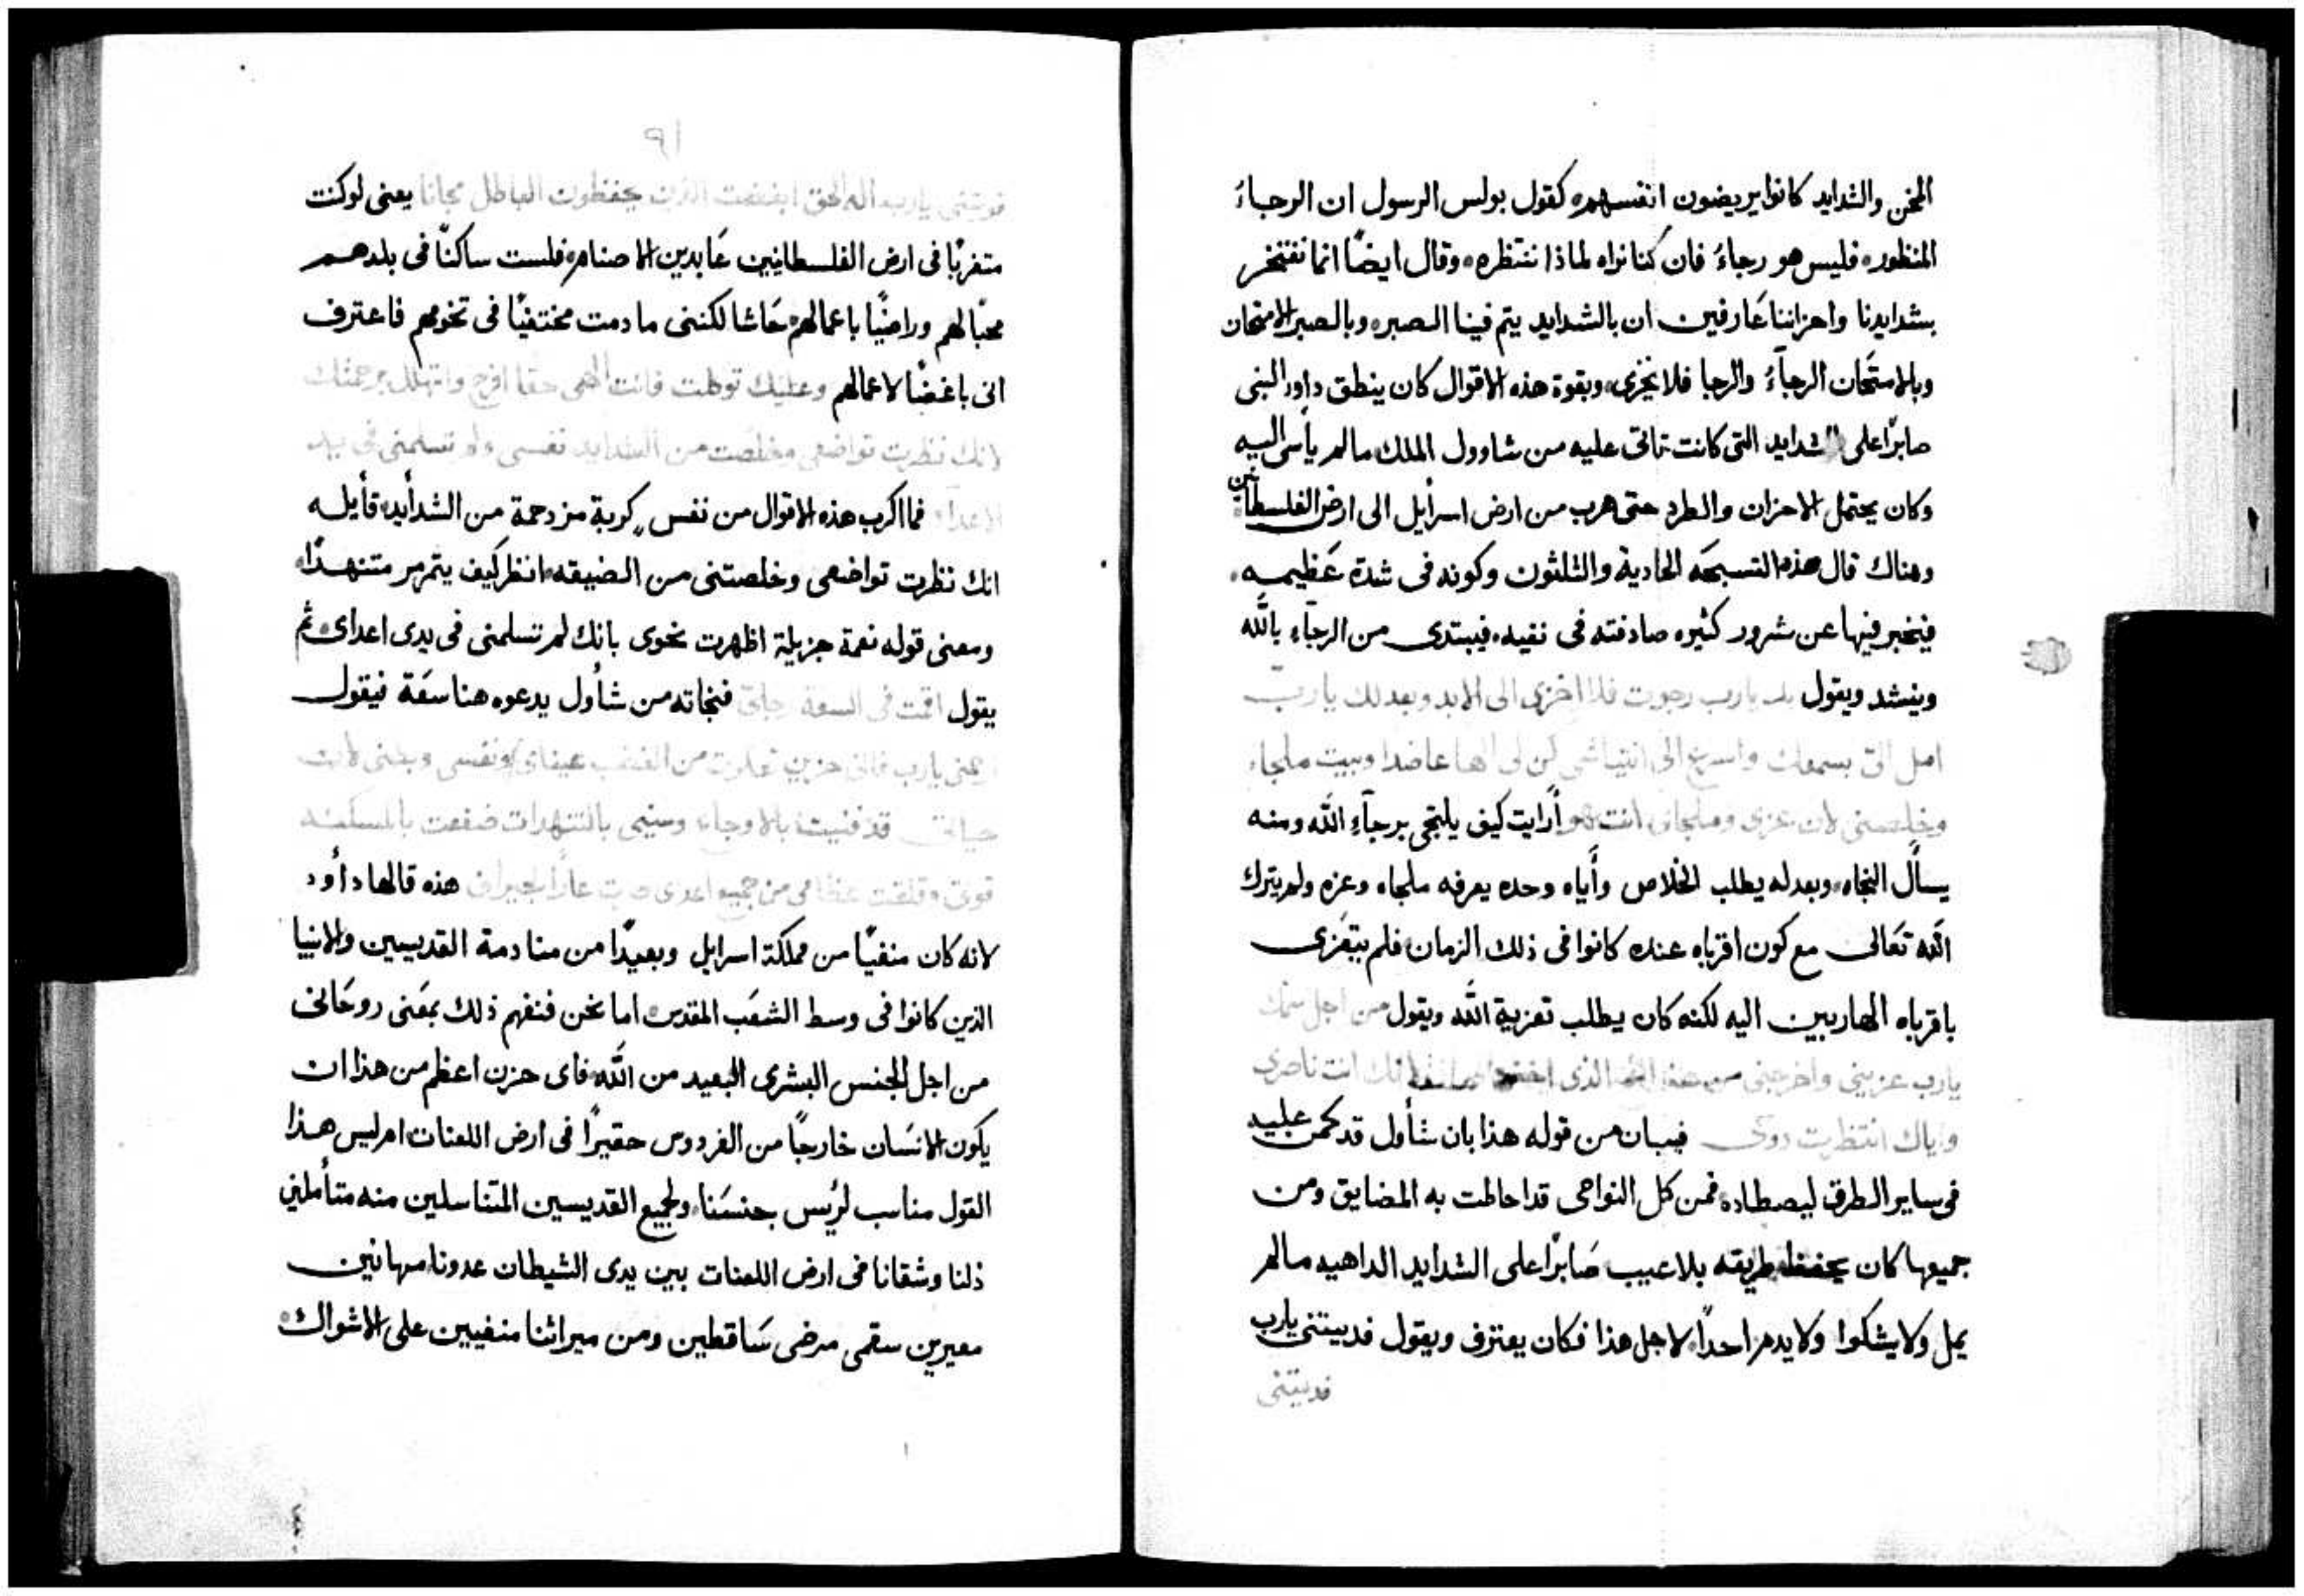 المحن والشدايد كانوا يريضون انفسهم، كقول بولس الرسول ان الرجاءُ
المنظور، فليس هو رجاءُ فان كنا نراه لماذا ننتظره، وقال ايضًا انما نفتخر
بشدايدنا واحزاننا عَارفين ان بالشدايد يتم فينا الصبر، وبالصبر الامتحان
وبالامتَحان الرجآءُ والرجا فلا يخزى، وبقوة هذه الاقوال كان ينطق داود النبى
صابرًا على الشدايد التى كانت تاتى عليه من شاوول الملك، مالم يأسى اليه
وكان يحتمل الاحزان والطرد حتى هرب من ارض اسرأيل الى ارض الفلسطانين
وهناك قال هذه التسبحَه الحادية والثلثون وكونه فى شدة عَظيمه،
فيخبر فيها عن شرور كثيره صادفته فى نفيه، فيبتدى من الرجآءِ باللَّه
وينشد ويقول بك يارب رجوت فلا اخزى الى الابد وبعدلك يارب
امل الىّ بسمعك واسرع الى انتياشى كن لى الها عاضدا وبيت ملجاء
وخلصنى لان عزى وملجاى انت هو أرايت كيف يلتجى برجآءِ اللَّه ومنه
يسأَل النجاه، وبعدله يطلب الخلاص وأَياه وحده يعرفه ملجاه وعزه ولم يترك
اللَّه تعَالى مع كون اقرباه عنده كانوا فى ذلك الزمان، فلم يتعَزى
باقرباه الهاربين اليه لكنه كان يطلب تعزية اللَّه ويقول من اجل اسمك
يارب عزينى واخرجنى من هذا الفخ الذى اخفوا لانك انت ناصرى
واياك انتظرت فبان من قوله هذا بان شأول قد كمن عليه
فى ساير الطرق ليصطاده، فمن كل النواحى قد احاطت به المضايق ومن
جميعها كان يحفظ طريقه بلا عيب صَابرًا على الشدايد الداهيه مالم
يمل ولا يشكوا ولا يدم احدًا، لاجل هذا فكان يعترف ويقول فديتنى يارب
فديتنى
٩١
فديتنى يارب اله الحق ابغضت الذين يحفظون الباطل مجانا يعنى لو كنت
متغربًا فى ارض الفلسطانيين عَابدين الاصنام، فلست ساكنًا فى بلدهم
محبًا لهم وراضيًا باعمالهم، حَاشا لكننى ما دمت مختفيًا فى تخومهم فاعترف
انى باغضًا لاعمالهم وعليك توكلت فانت الهى حقا افرح واتهلل برحمتك
لانك نظرت تواضعى وخلصت من الشدايد نفسى ولم تسلمنى فى يد
الاعداء فما اكرب هذه الاقوال من نفس كربةٍ مزدحمة من الشدأيد، قأيله
انك نظرت تواضعى وخلصتنى من الضيقه، انظر كيف يتمرمر متنهدًا،
ومعنى قوله نعمة جزيلة اظهرت نحوى بانك لم تسلمنى فى يدى اعداى، ثم
يقول اقمت فى السعة رجلىّ فنجاته من شأول يدعوه هنا سعَة فيقول
ارحمنى يارب فانى حزين تعكرت من الغضب عيناى ونفسى وبطنى لانت
حياتى قد فنيت بالاوجاع وسنينى بالتنهدات ضعفت بالمسكنه
قوتى وقلقت عظامى من جميع اعداى صرت عارًا لجيرانى هذه قالها دأود
لانه كان منفيًا من مملكة اسرايل وبعيدًا من منادمة القديسين والانبيا
الذين كانوا فى وسط الشعَب المقدس، اما نحن فنفهم ذلك بمعَنى روحَانى
من اجل الجنس البشرى البعيد من اللَّه، فاى حزن اعظم من هذا ان
يكون الانسَان خارجًا من الفردوس حقيرًا فى ارض اللعنات ام ليس هذا
القول مناسب لرئِس جنسَنا، ولجميع القديسين المتناسلين منه متأملين
ذلنا وشقانا فى ارض اللعنات بين يدى الشيطان عدونا، مهانين
معيرين سقمى مرضى سَاقطين ومن ميراثنا منفيين على الاشواك،